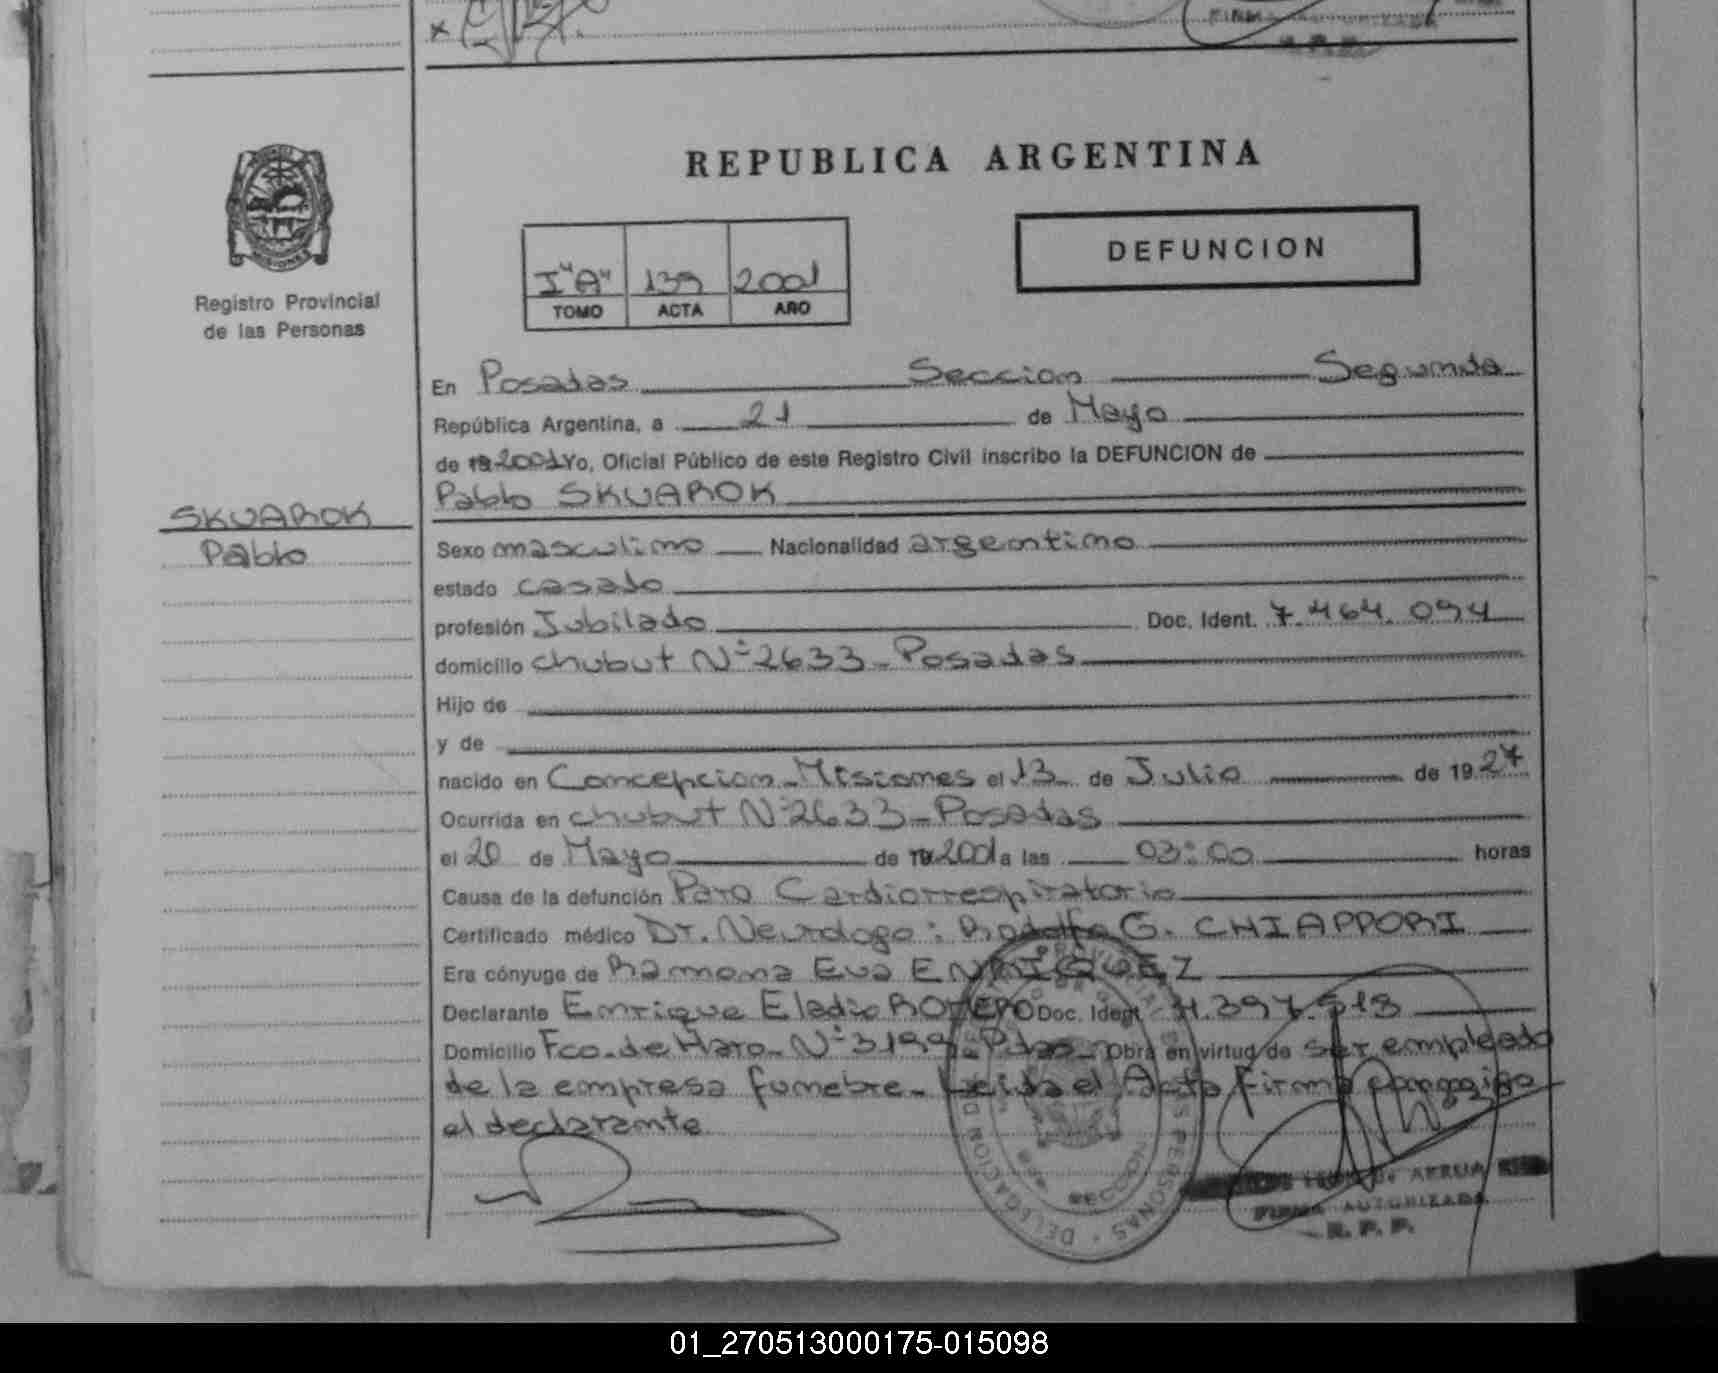 FIRMA AUTORIZADA
R. P. P.
REPUBLICA ARGENTINA
MISIONES
Registro Provincial
de las Personas
I "A" 139 2001
TOMO ACTA AÑO
DEFUNCION
En Posadas Seccion Segunda
República Argentina, a 21 de Mayo
de 19 2001 Yo, Oficial Público de este Registro Civil inscribo la DEFUNCION de
Pablo SKUAROK
SKUAROK
Pablo
Sexo masculino Nacionalidad argentino
estado casado
profesión Jubilado Doc. Ident. 7.464.094
domicilio chubut Nº 2633 - Posadas
Hijo de
y de
nacido en Concepcion - Misiones el 13 de Julio de 1927
Ocurrida en chubut Nº 2633 - Posadas
el 20 de Mayo de 19 2001 a las 03:00 horas
Causa de la defunción Paro Cardiorrespiratorio
Certificado médico Dr. Neurologo: Rodolfo G. CHIAPPORI
Era cónyuge de Ramona Eva ENRIQUEZ
Declarante Enrique Eladio ROTERO Doc. Ident. 11.397.513
Domicilio Fco. de Haro - Nº 3199 - Pdas - Obra en virtud de ser empleado
de la empresa funebre - Leida el Acta firma conmigo
el declarante
DELEGACION PERSONAS
de ARRUA
FIRMA AUTORIZADA
R. P. P.
01_270513000175-015098